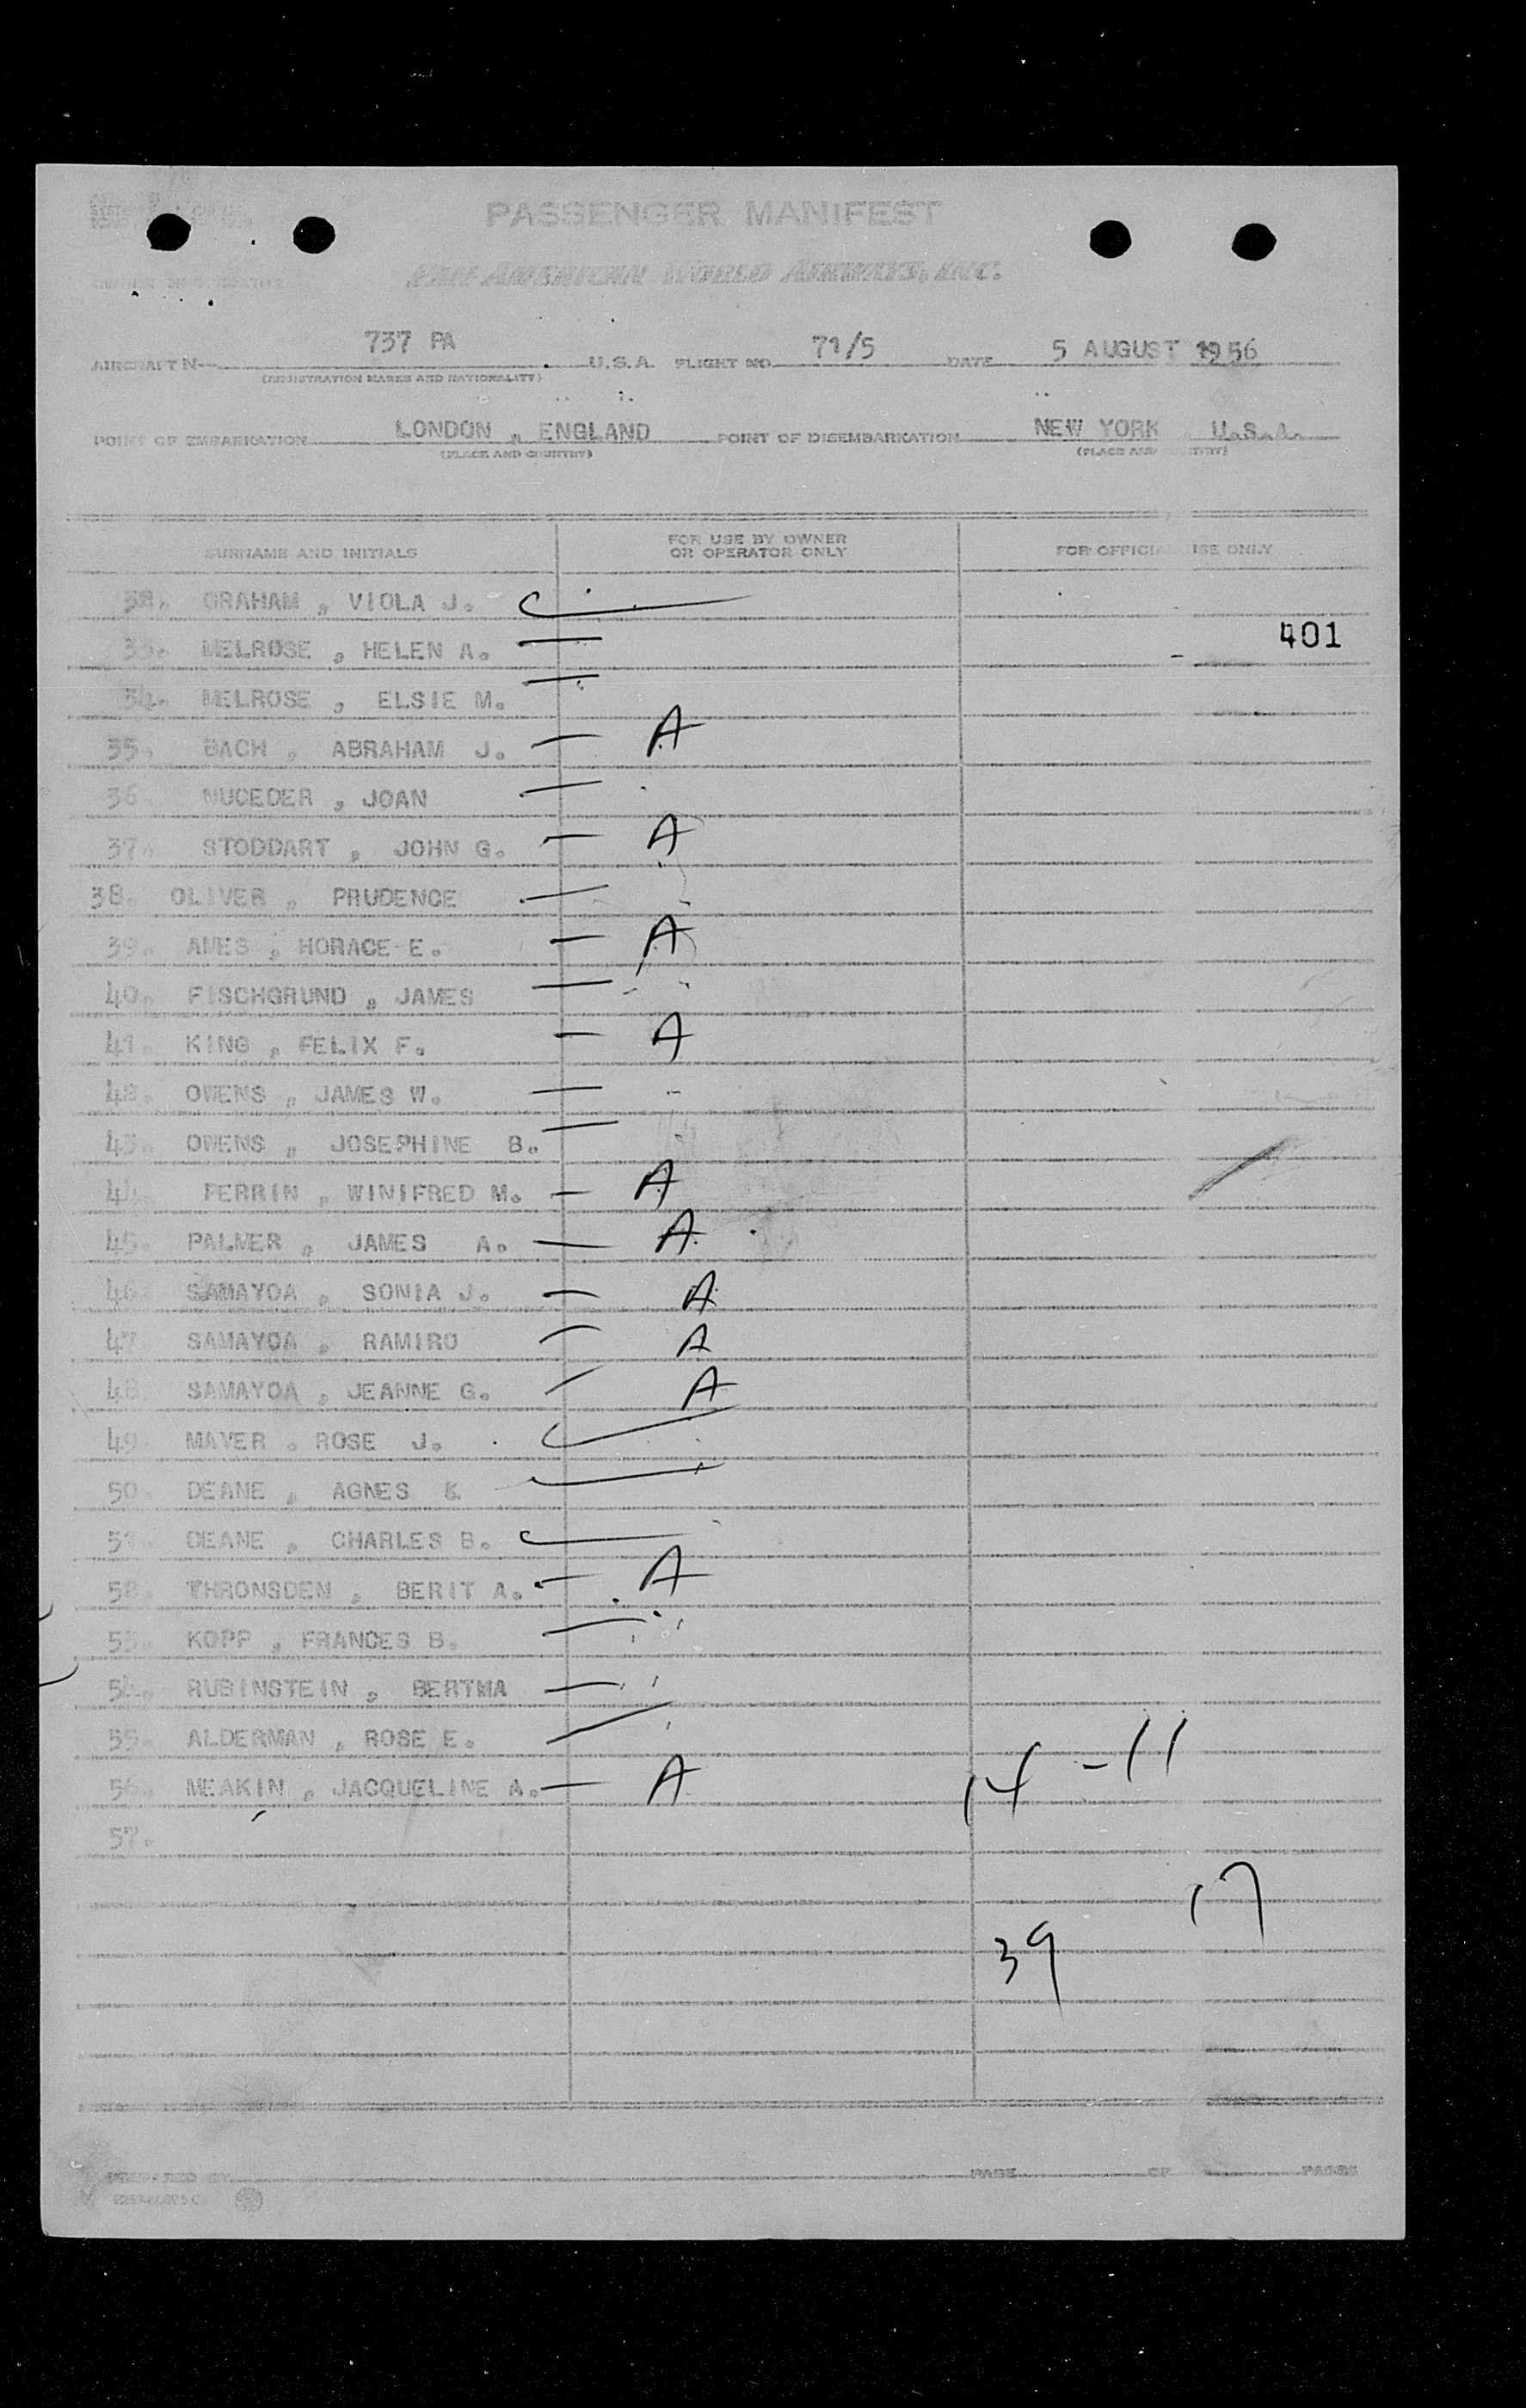 PASSENGER MANIFEST
PAN AMERICAN WORLD AIRWAYS, INC.
OWNER OR OPERATOR
AIRCRAFT N 737 PA U.S.A. FLIGHT NO. 71/5 DATE 5 AUGUST 1956
(REGISTRATION MARKS AND NATIONALITY)
POINT OF EMBARKATION LONDON , ENGLAND POINT OF DISEMBARKATION NEW YORK U.S.A.
(PLACE AND COUNTRY) (PLACE AND COUNTRY)
SURNAME AND INITIALS FOR USE BY OWNER OR OPERATOR ONLY FOR OFFICIAL USE ONLY
32. GRAHAM , VIOLA J.
401
33. MELROSE , HELEN A.
34. MELROSE , ELSIE M.
35. BACH , ABRAHAM J. A
36 NUCEDER , JOAN
37. STODDART , JOHN G. A
38. OLIVER , PRUDENCE
39. AMES , HORACE E. A
40. FISCHGRUND , JAMES
41. KING , FELIX F. A
42. OWENS , JAMES W.
43. OWENS , JOSEPHINE B.
44. PERRIN , WINIFRED M. A
45. PALMER , JAMES A. A
46 SAMAYOA , SONIA J. A
47 SAMAYOA , RAMIRO A
48 SAMAYOA , JEANNE G. A
49. MAYER , ROSE J.
50. DEANE , AGNES K
51. DEANE , CHARLES B.
52. THRONSDEN , BERIT A. A
53. KOPP , FRANCES B.
54. RUBINSTEIN , BERTHA
55. ALDERMAN , ROSE E.
56. MEAKIN , JACQUELINE A. A 14 - 11
57.
17
39
PREPARED BY PAGE OF PAGES